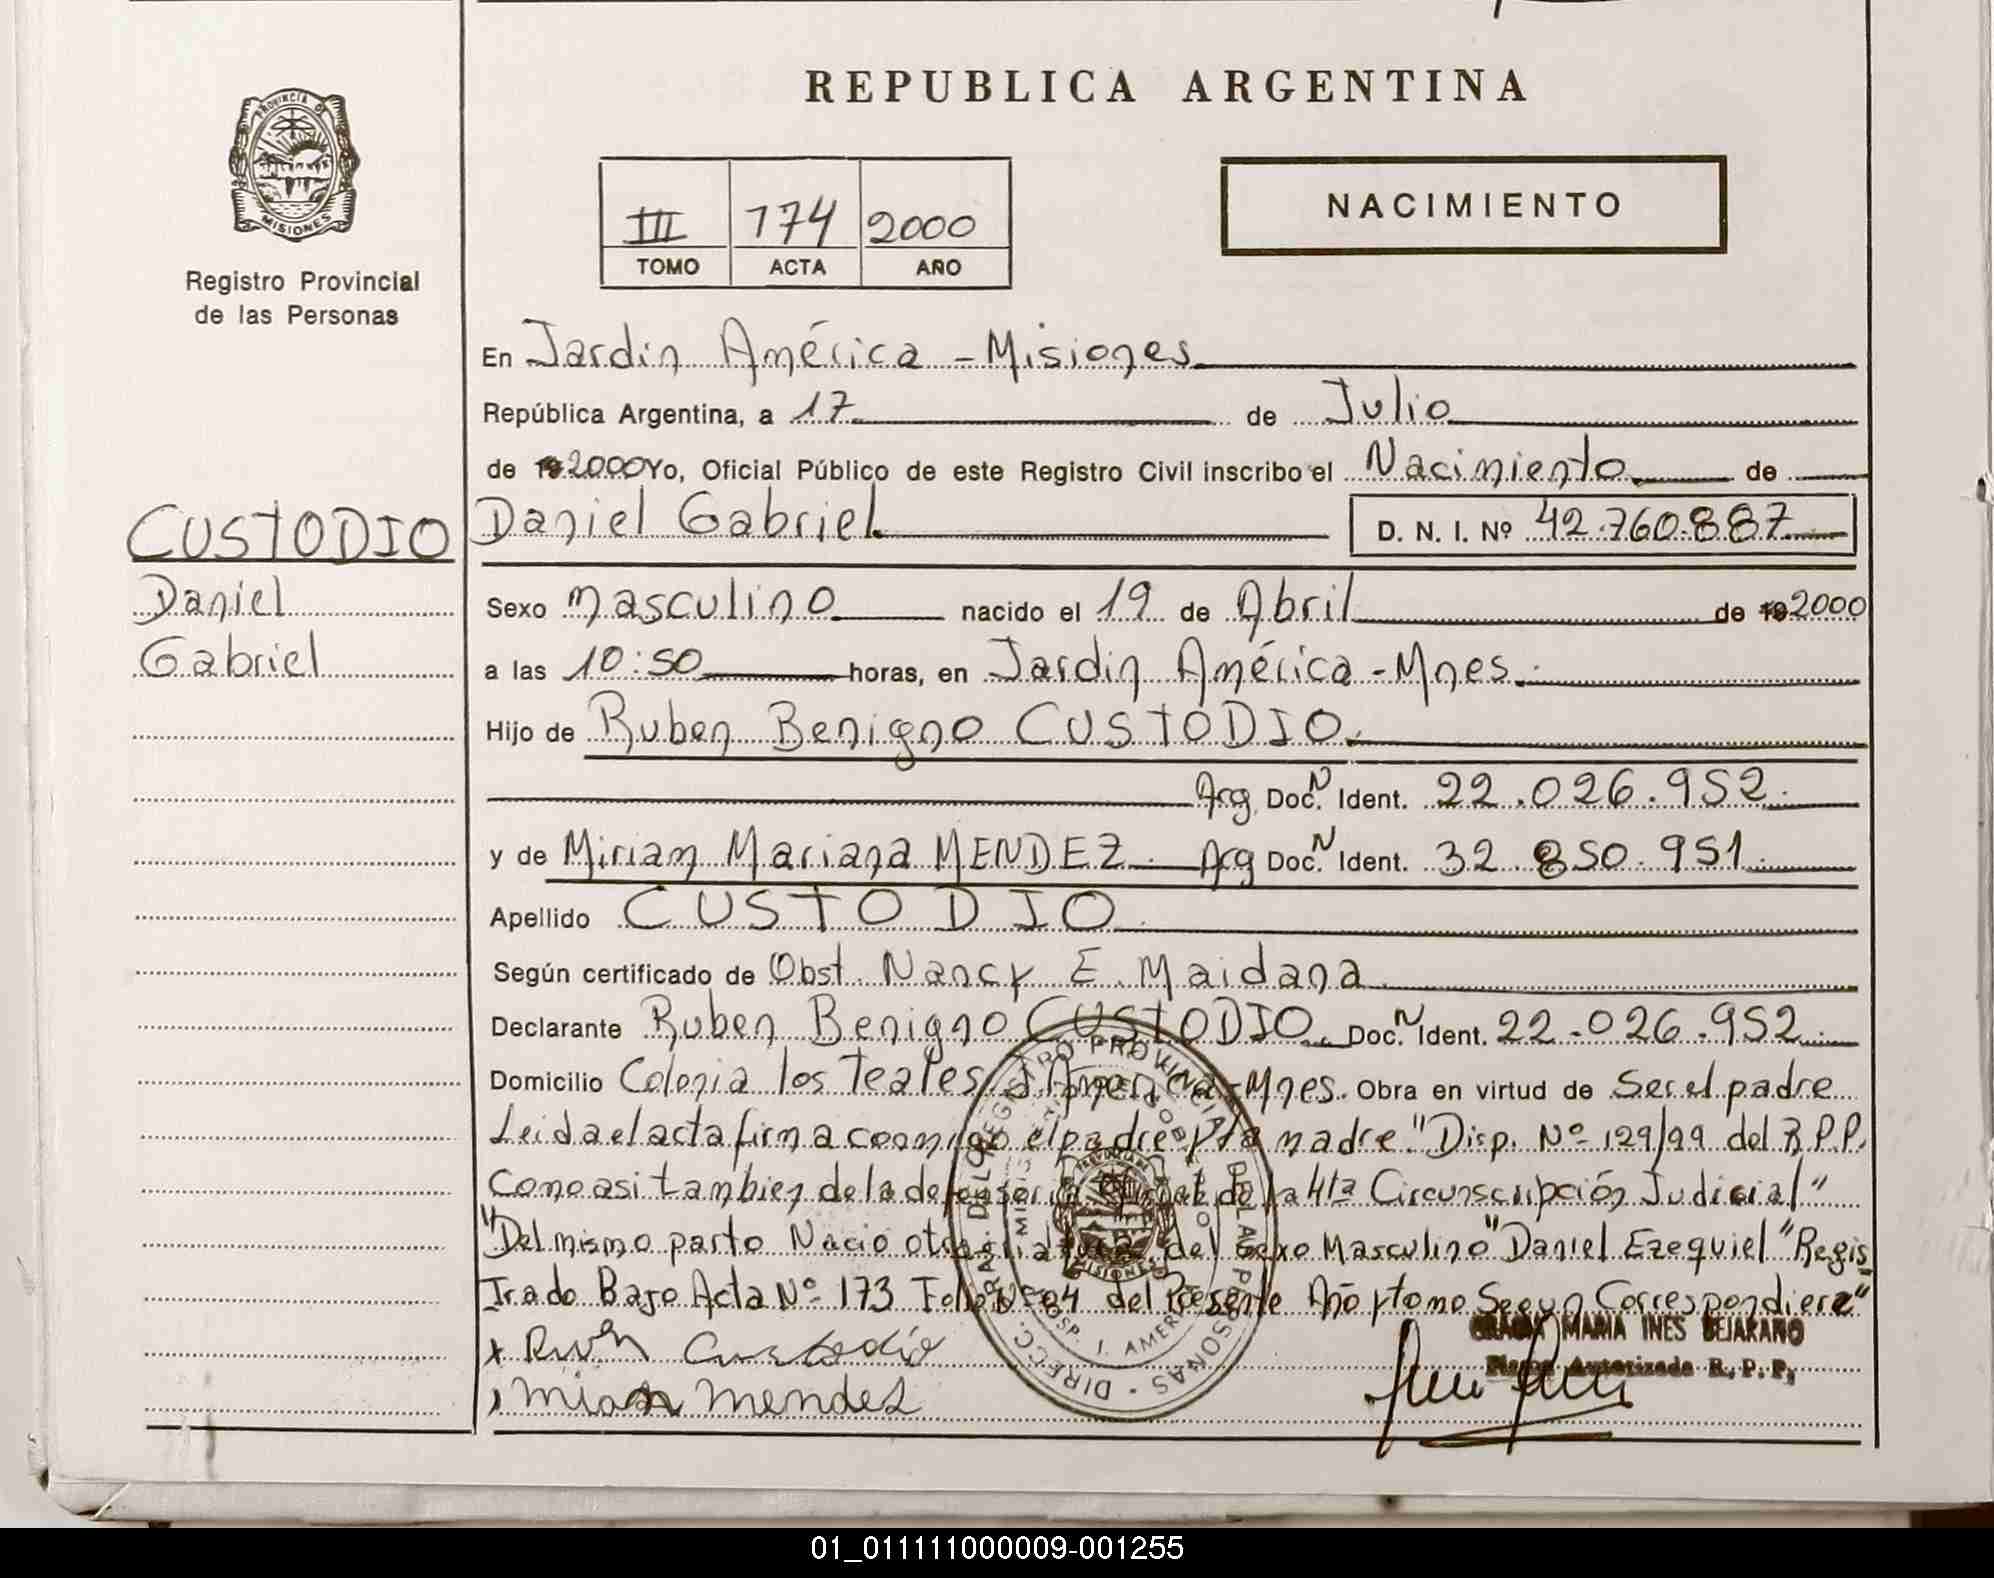 REPUBLICA ARGENTINA
PROVINCIA DE
MISIONES
Registro Provincial
de las Personas
III 174 2000
TOMO ACTA AÑO
NACIMIENTO
En Jardin América - Misiones
República Argentina, a 17 de Julio
de 2000 Yo, Oficial Público de este Registro Civil inscribo el Nacimiento de
CUSTODIO
Daniel
Gabriel
Daniel Gabriel D. N. I. Nº 42.760.887
Sexo masculino nacido el 19 de Abril de 2000
a las 10:50 horas, en Jardin América - Mnes.
Hijo de Ruben Benigno CUSTODIO.
Arg. Doc. N Ident. 22.026.952.
y de Miriam Mariana MENDEZ. Arg Doc. N Ident. 32.850.951.
Apellido CUSTODIO.
Según certificado de Obst. Nancy E. Maidana
Declarante Ruben Benigno CUSTODIO. Doc. N Ident. 22.026.952.
Domicilio Colonia los Teales J. América - Mnes. Obra en virtud de Ser el padre
Leida el acta firma conmigo el padre y la madre "Disp. Nº 129/99 del R.P.P.
Como asi tambien de la defensoria de la 4ta Circunscripción Judicial"
"Del mismo parto Nacio del Sexo Masculino "Daniel Ezequiel" Regis
trado Bajo Acta Nº 173 del Presente Año y tomo Segun Correspondiere"
GRACIA MARIA INES BEJARANO
Firma Autorizada R. P. P.
x Ruben Custodio
Mendez
DIRECC. GRAL. DEL REGISTRO PROVINCIAL DE LAS PERSONAS
MISIONES
01_011111000009-001255